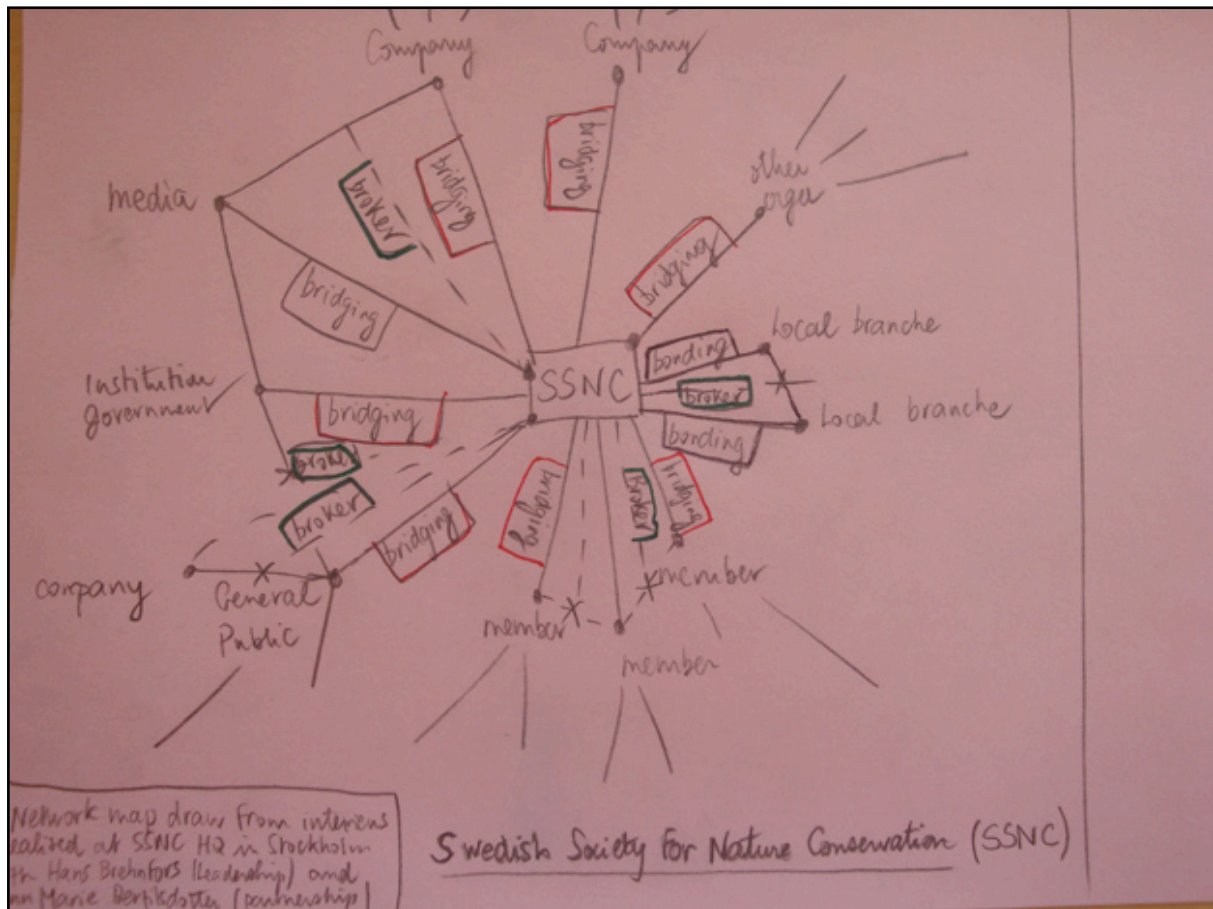 Company
Company
other
orga
media
broker
bridging
bridging
bridging
bridging
Local branche
bonding
SSNC
broker
Local branche
bonding
Institution
government
bridging
broker
broker
bridging
bridging
Broker
bridging
company
General
Public
member
member
member
Network map draw from interviews
at SSNC HQ in Stockholm
Hans Brehnfors (Leadership) and
Marie (partnership)
Swedish Society For Nature Conservation (SSNC)